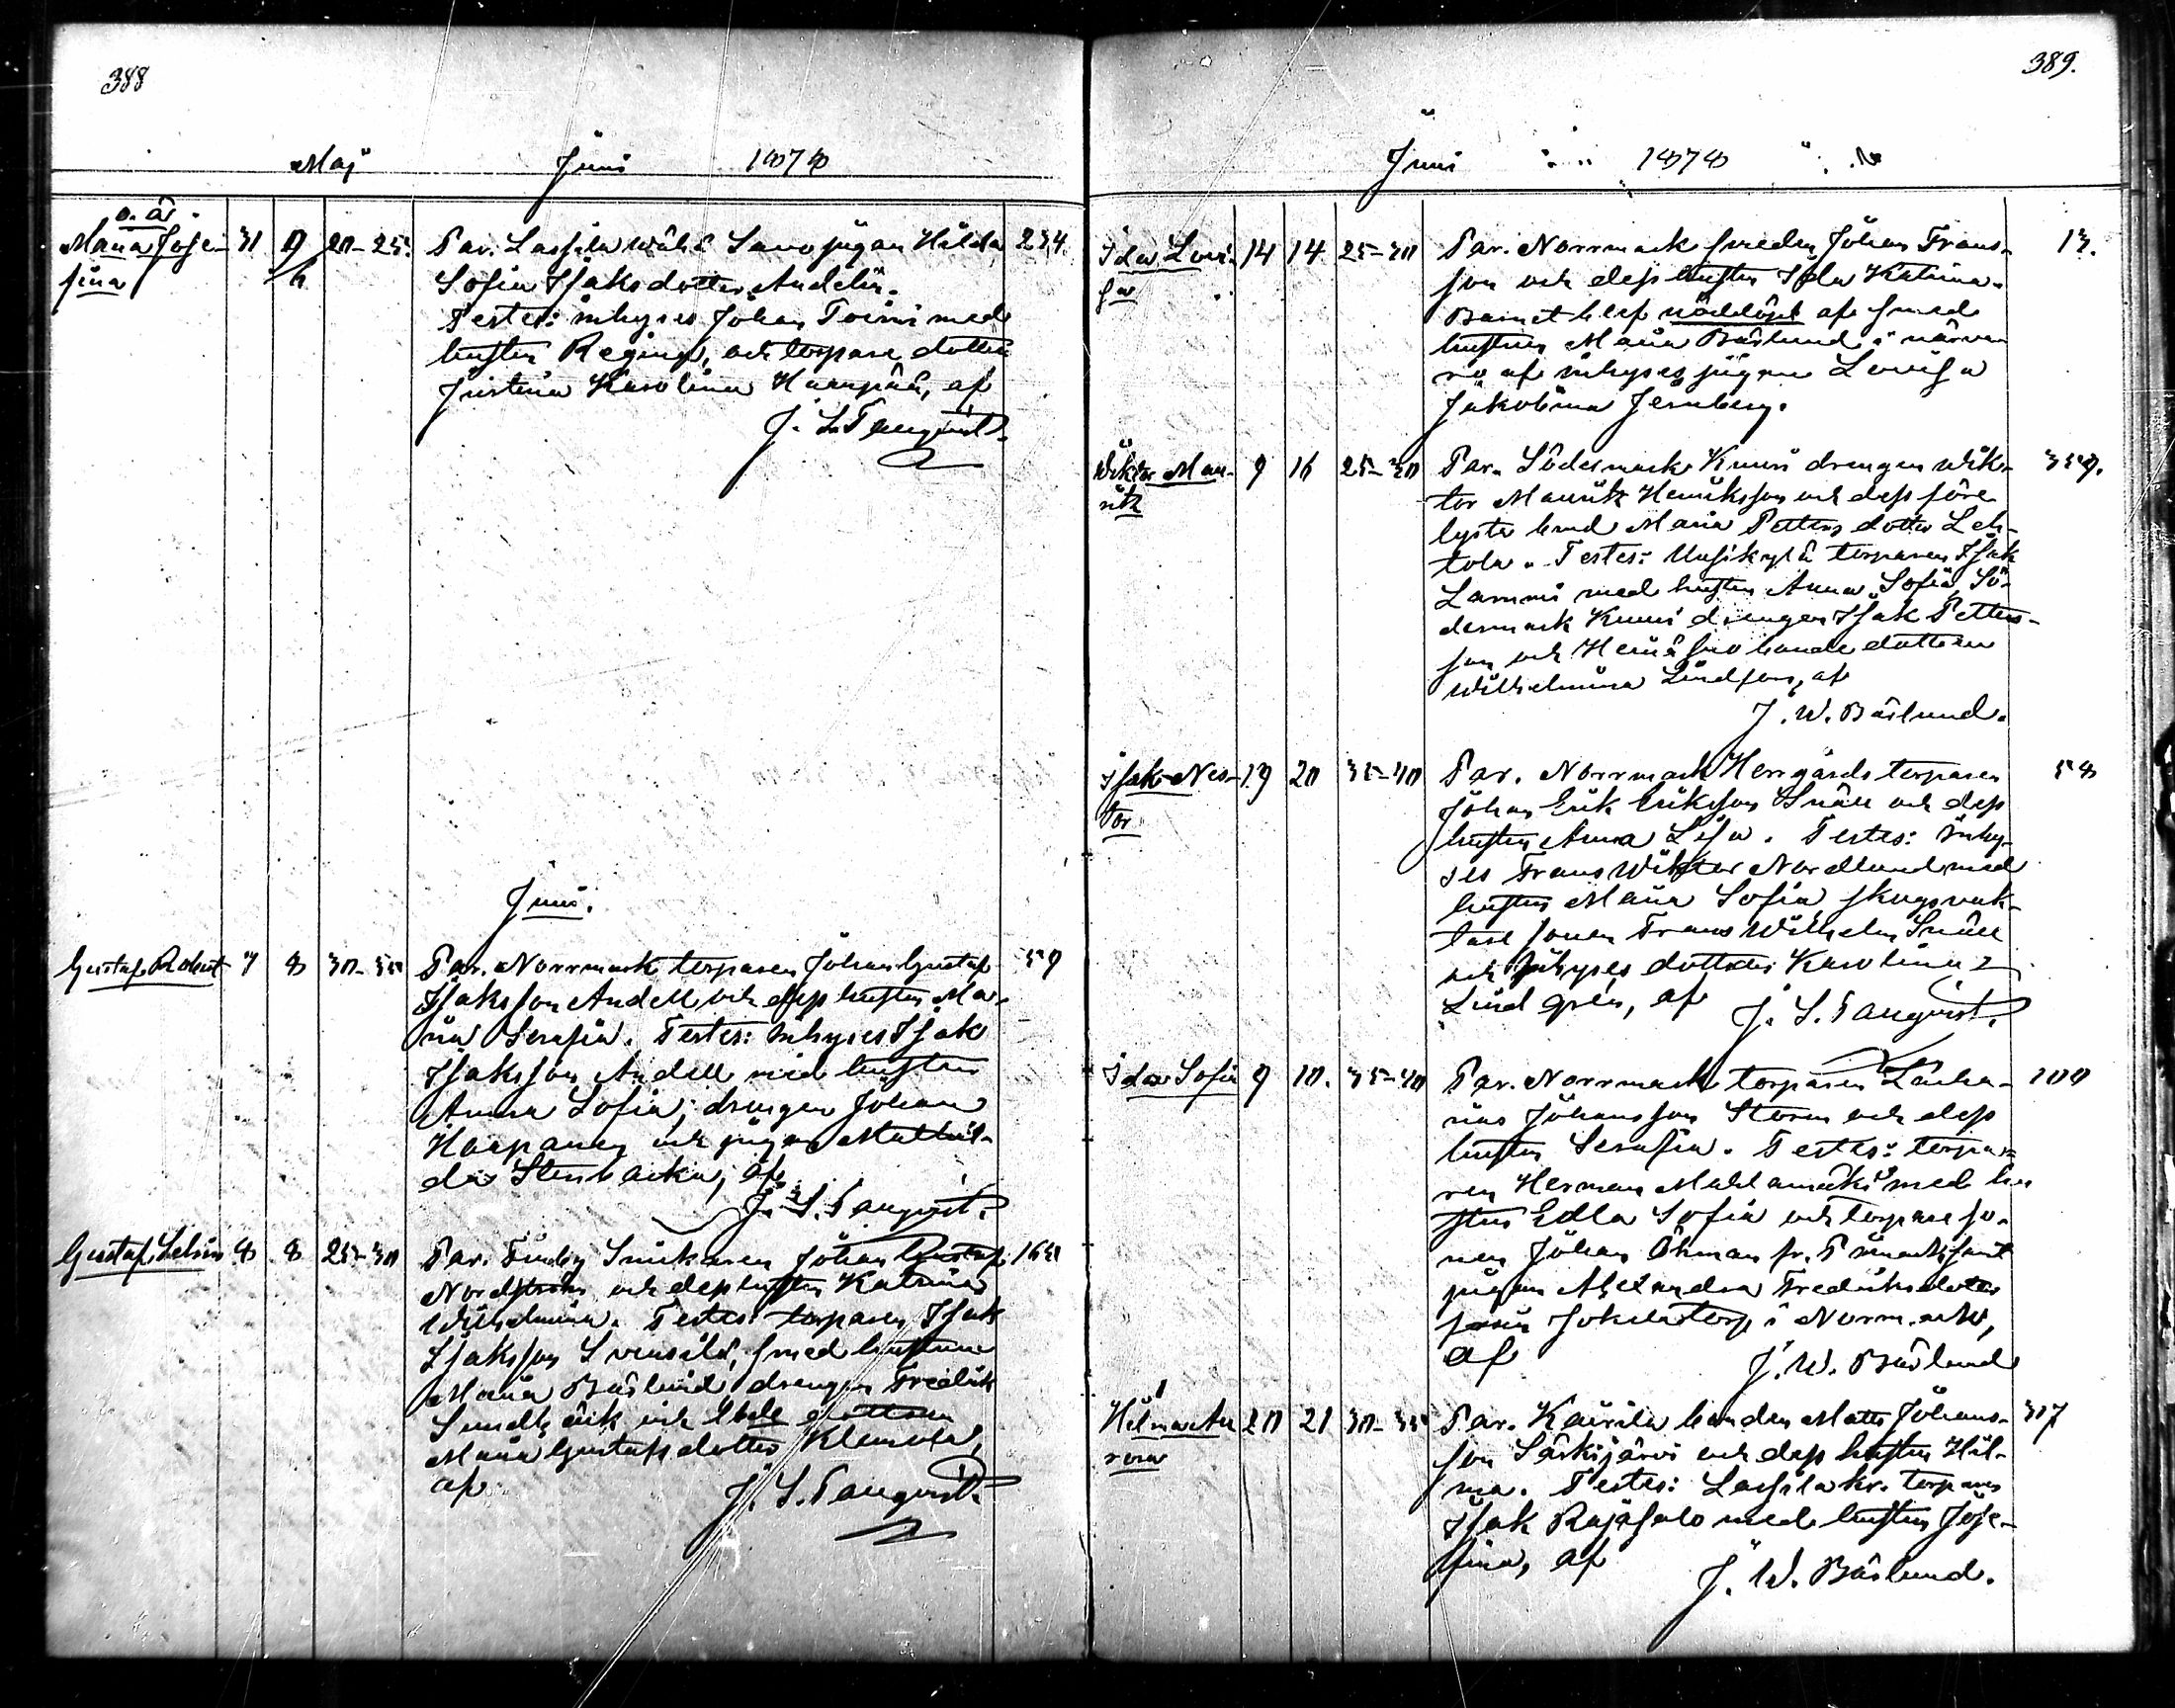 388
Maj Juni 1878
o. ä.
Maria Jose- 31 9/6 20-25. Par. Lassila Wähä Savo pigan Hilda 234.
fina Sofia Isaksdotter Andelin.
Testes: inhyses Johan Toivi med
hustru Regina, och torpare dottern
Justina Karolina Haanpää, af
J. S. Tanqvist.
Juni.
Gustaf Robert 7 8 30-35 Par. Norrmark torparen Johan Gustaf 59
Isaksson Andell och dess hustru Ma-
ria Serafia. Testes: inhyses Isak
Isaksson Andell med hustru
Anna Sofia, drengen Johan
Haapanen och pigan Mathil-
da Stenbacka, af
J. S. Tanqvist.
Gustaf Selim 8 8 25-30 Par. Finby Snickaren Johan Gustaf
Nordström och dess hustru Katrina
Wilhelmina. Testes: torparen Isak
Isaksson Svensilä, smed hustrun
Maria Bärlund drengen Fredrik
och dottern
Maria Gustafsdotter Klemola,
af
J. S. Tanqvist.
389.
Juni 1878
Ida Lovi- 14 14 25-30 Par. Norrmark smeden Johan Frans- 13.
sa son och dess hustru Ida Katrina.
Barnet blef nöddöpt af smed
hustrun Maria Bärlund i närva
ro af inhyses pigan Lovisa
Jakobina Jernberg.
Wiktor Mau- 9 16 25-30 Par. Södermark Knusi drengen Wik-
ritz tor Mauritz Henriksson och dess före
lysta brud Maria Petters dotter Leh-
tola. Testes: Uusikylä torparen Isak
Lammi med hustru Anna Sofia, Sö-
dermark Knusi drengen Isak Petters-
son och Heinäsuo bonde dottern
Wilhelmina Lindfors, af
J. W. Bärlund.
Isak Nes- 19 20 35-40 Par. Norrmark Herrgårds torparen 58
tor Johan Erik Eriksson Snäll och dess
hustru Anna Lisa. Testes: inhy-
ses Frans Wiktor Nordlund med
hustru Maria Sofia skogsvak-
tare sonen Frans Wilhelm Snäll
och inhyses dottren Karolina
Lindgren, af J. S. Tanqvist.
Ida Sofia 9 10. 35-40 Par. Norrmark torparen Zacha- 100
rias Johansson Storm och dess
hustru Serafia. Testes: torpa-
ren Herman Mahlamäki med hu
stru Edla Sofia och torpare so-
nen Johan Öhman fr. samt
pigan Alexandra Fredriksdotter
från Jokela torp i Norrmark,
af J. W. Bärlund
Hilma Au 20 21 30-35 Par. Kairila bonden Matts Johans- 307
rora son Särkijärvi och dess hustru Hil-
ma. Testes: Lassila kr. torparen
Isak Rajasalo med hustru Jose-
fina, af J. W. Bärlund.